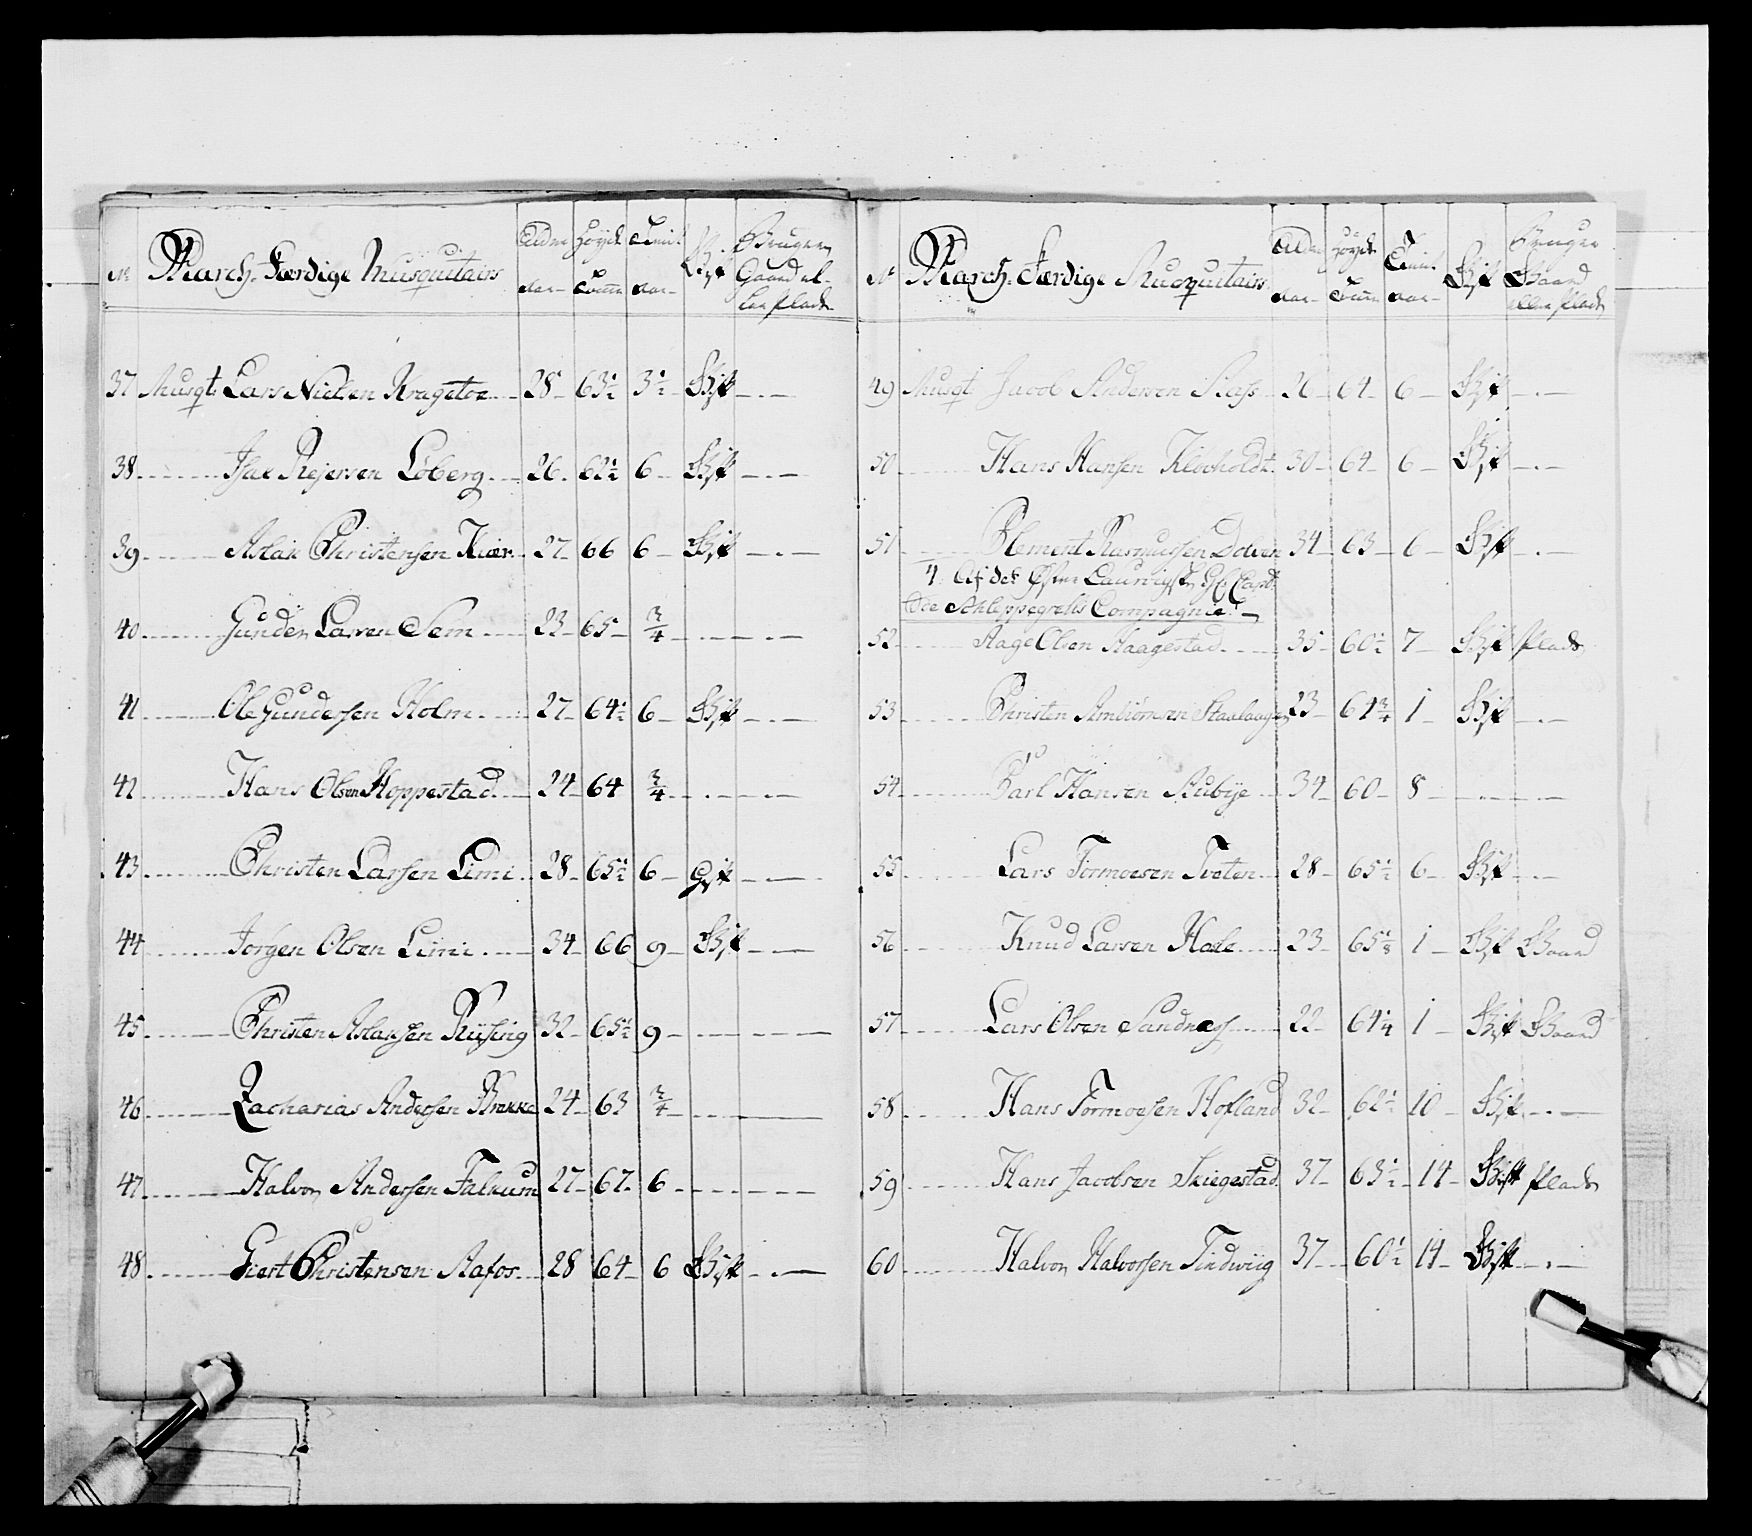 No March-Færdige Musquitairs Alder aar Høyde Tomme Tient aar Gift Bruger Gaard eller Plads
37 Musqt Lars Nielsen Kragetoe 28 63½ 3½ Gift
38 Isac Rejersen Løberg 26 62½ 6 Gift
39 Aslak Christensen Kiær 27 66 6 Gift
40 Gunder Larsen Sem 23 65 ¾
41 Ole Gundersen Holm 27 64½ 6 Gift
42 Hans Olsen Hoppestad 24 64 ¾
43 Christen Larsen Limi 28 65½ 6 Gift
44 Jørgen Olsen Limi 34 66 9 Gift
45 Christen Aslaksen Rising 32 65½ 9
46 Zacharias Andersen Brekke 24 63 ¾
47 Halvor Andersen Falkum 27 67 6
48 Giert Christensen Aafos 28 64 6 Gift
No March-Færdige Musquitairs Alder aar Høyde Tomme Tient aar Gift Bruger Gaard eller Plads
49 Musqt Jacob Andersen 26 64 6 Gift
50 Hans Hansen Kleboholdt 30 64 6 Gift
51 Clement Rasmussen Dolven 34 63 6 Gift
4. Af det Øster Laurvigske Capt:
de Schleppegrells Compagnie
52 Aage Olsen Haagestad 35 60½ 7 Gift Plads
53 Christen Ambiørnsen 23 61¾ 1 Gift
54 Carl Hansen Aubye 34 60 8
55 Lars Tormoesen Tveten 28 65½ 6 Gift
56 Knud Larsen Hale 23 65½ 1 Gift Gaard
57 Lars Olsen Sandnæss 22 64¼ 1 Gift Gaard
58 Hans Tormoesen Hofland 32 62½ 10 Gift
59 Hans Jacobsen Skiegestad 37 63½ 14 Gift Plads
60 Halvor Halvorsen Tindwiig 37 60½ 14 Gift